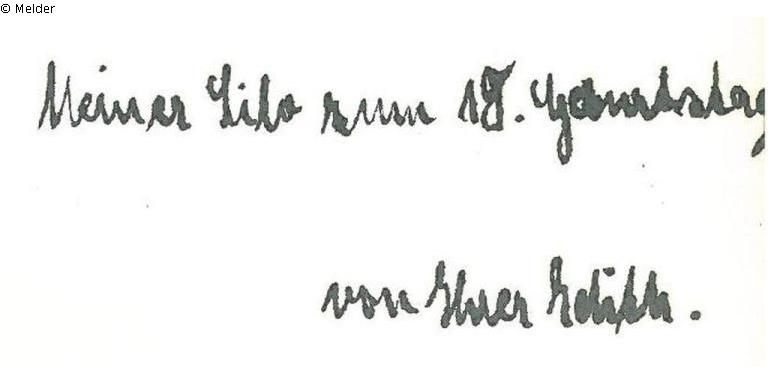 © Melder
Meiner Lilo zum 18. Geburtstag
von Ihrer Edith.